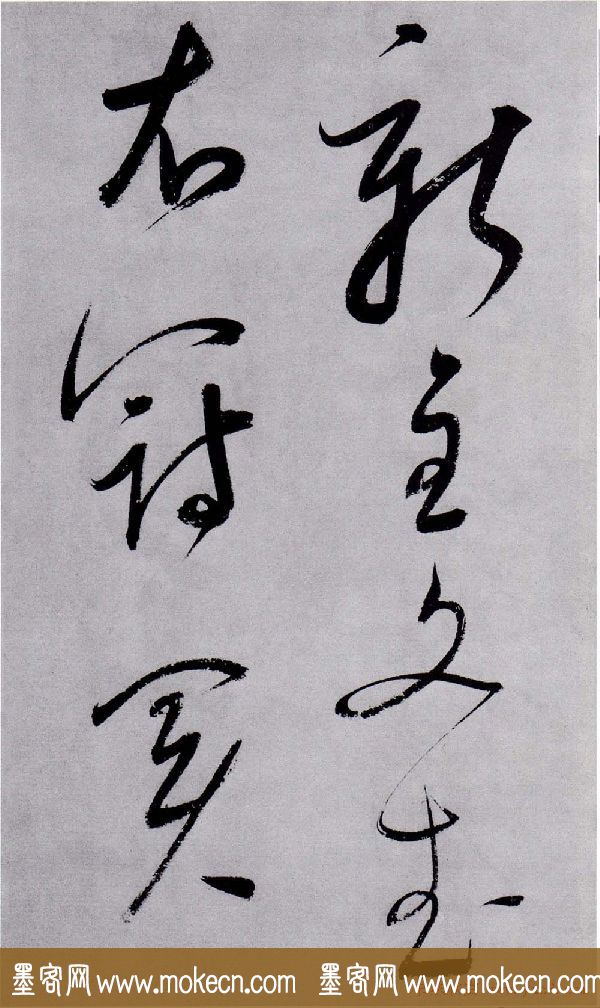 新主文武
右冠
墨客网 www.mokecn.com 墨客网 www.mokecn.com